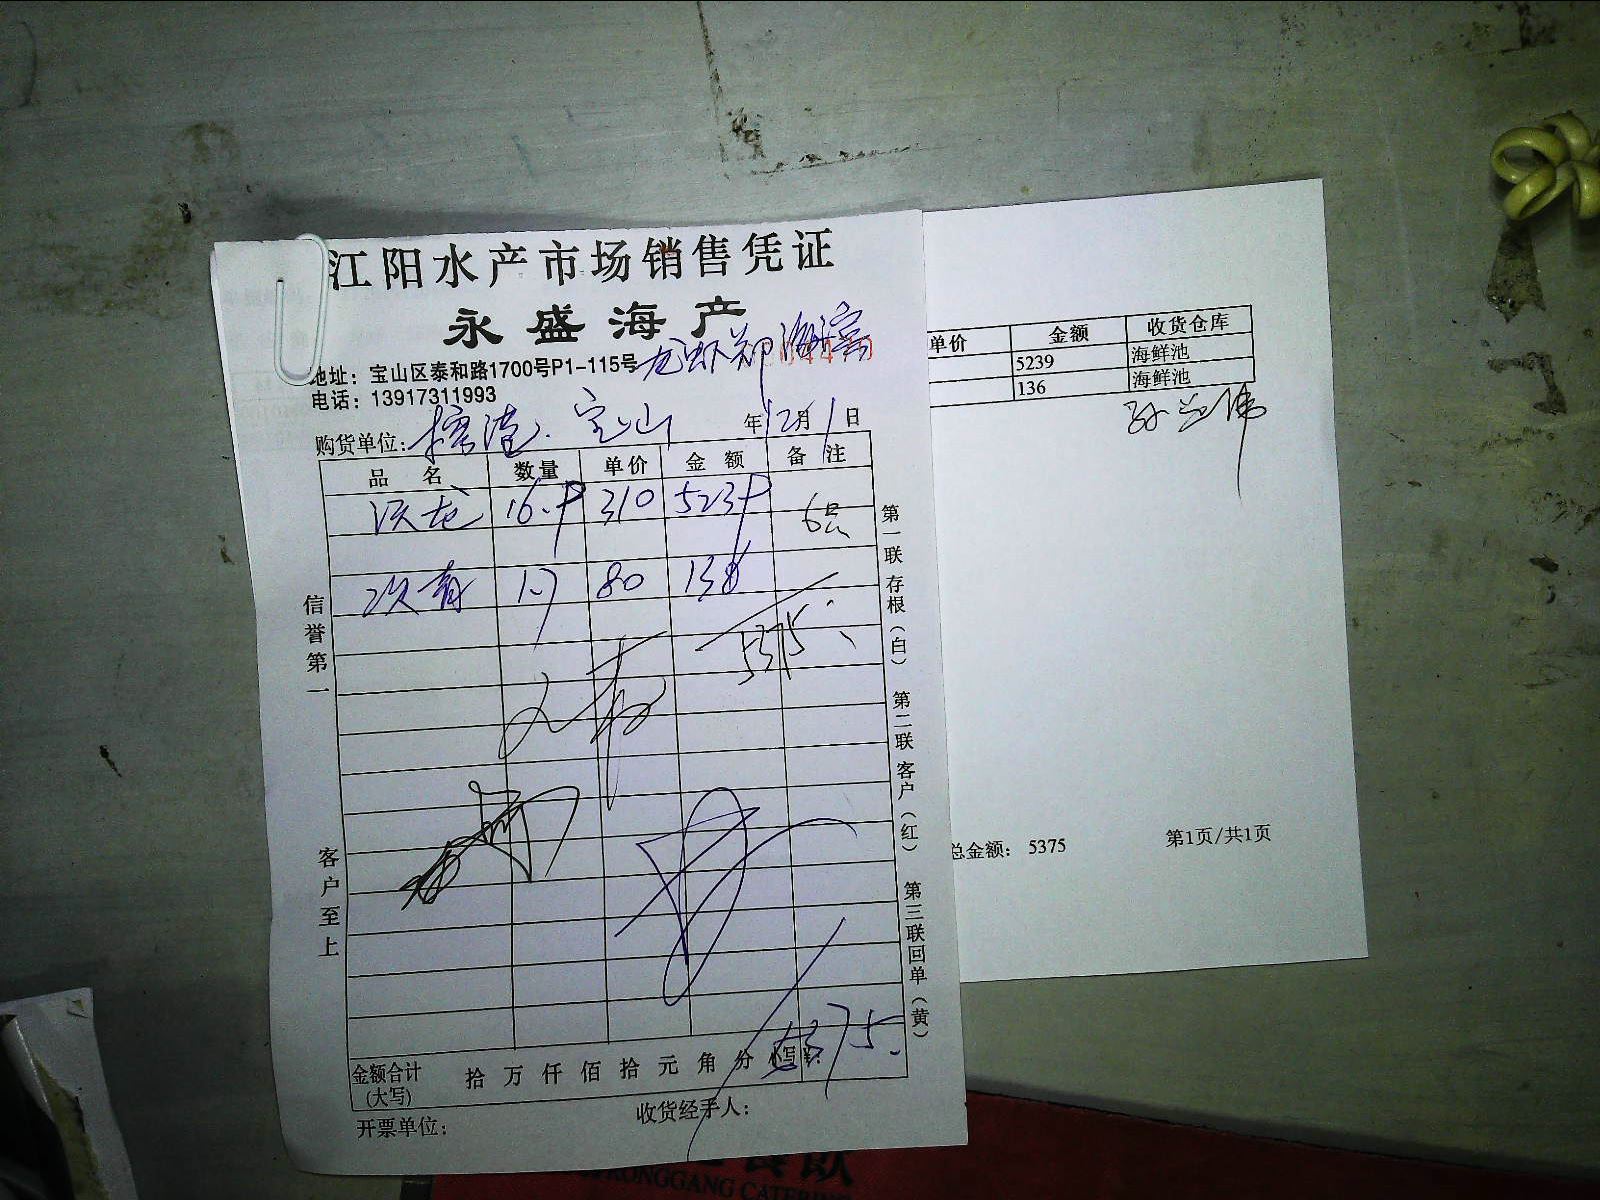 江阳水产市场销售凭证
永盛海产
地址：宝山区泰和路1700号P1-115号 龙虾郑海滨
电话：13917311993
购货单位: 宝山 年12月1日
品名 数量 单价 金额 备注
澳龙 16.9 310 5239 6只
1.7 80 136
5375
金额合计(大写) 拾万仟佰拾元角分 小写¥: 5375.
开票单位: 收货经手人:
信誉第一
客户至上
第一联存根(白) 第二联客户(红) 第三联回单(黄)
单价 金额 收货仓库
5239 海鲜池
136 海鲜池
总金额: 5375 第1页/共1页
RONGGANG CATERING